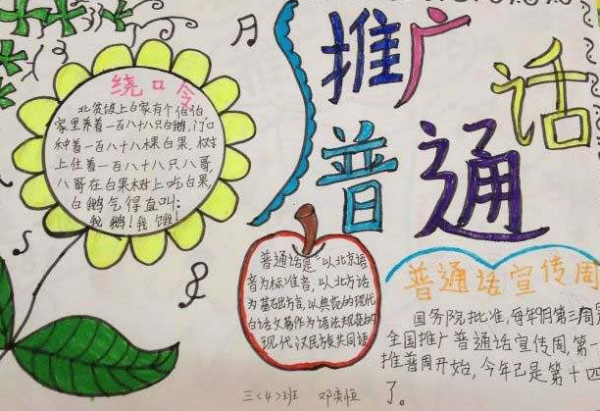 推广
普通话
绕口令
北贫坡上白家有个伯伯,
家里养着一百八十八只白鹅,门口
种着一百八十八棵白果,树
上住着一百八十八只八哥,
八哥在白果树上吃白果,
白鹅气得直叫:
我鹅!我饿!
普通话是“以北京语
音为标准音,以北方话
为基础方言,以典范的现代
白话文著作为语法规范的
现代汉民族共同语
普通话宣传周
国务院批准,每年9月第三周是
全国推广普通话宣传周,第一
推普周开始,今年已是第十四
了。
三<4>班 邓奕恒